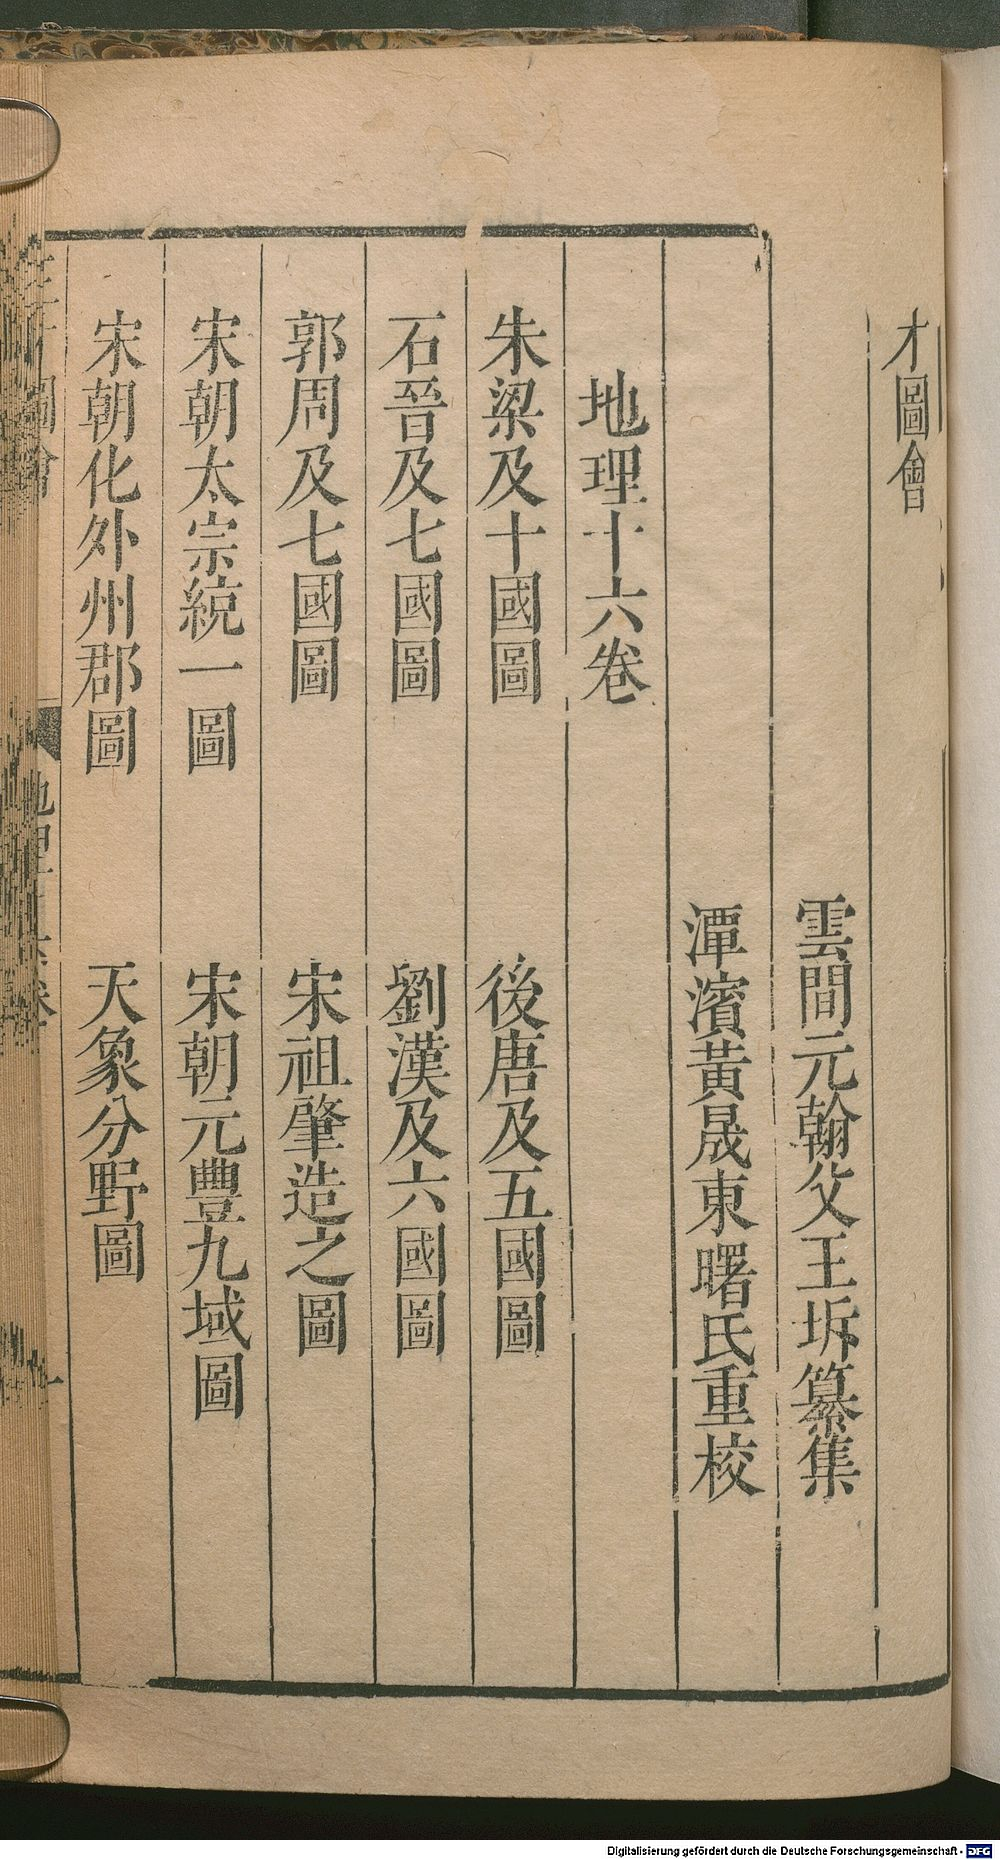 才圖會
雲間元翰父王圻纂集
潭濱黃晟東曙氏重校
地理十六卷
朱梁及十國圖
後唐及五國圖
石晉及七國圖
劉漢及六國圖
郭周及七國圖
宋祖肇造之圖
宋朝太宗統一圖
宋朝元豐九域圖
宋朝化外州郡圖
天象分野圖
Digitalisierung gefördert durch die Deutsche Forschungsgemeinschaft - DFG